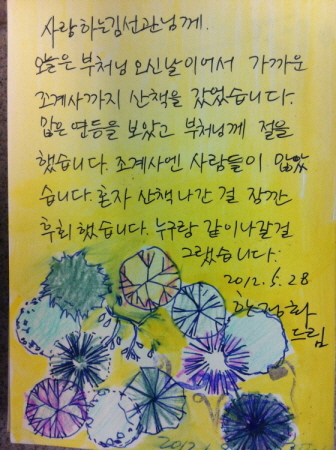 사랑하는김선관님께.
오늘은 부처님 오신날이어서 가까운
조계사까지 산책을 갔었습니다.
많은 연등을 보았고 부처님께 절을
했습니다. 조계사엔 사람들이 많았
습니다. 혼자 산책 나간 걸 잠깐
후회했습니다. 누구랑 같이나갈걸
그랬습니다.
2012.5.28
한정화
드림
2012.